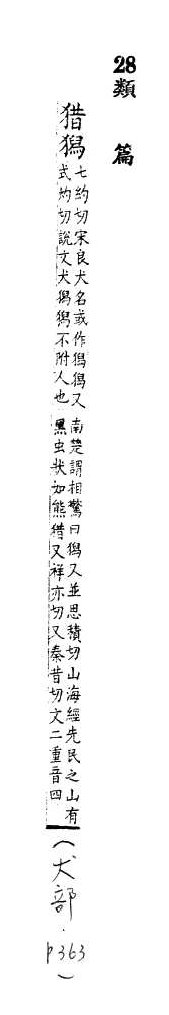 28 類篇
猎獡
七約切宋良犬名或作獡獡又
式約切說文犬獡獡不附人也
南楚謂相驚曰獡又並思積切山海經先民之山有
黑虫狀如熊猎又祥亦切又秦昔切文二重音四
(犬部.p363)